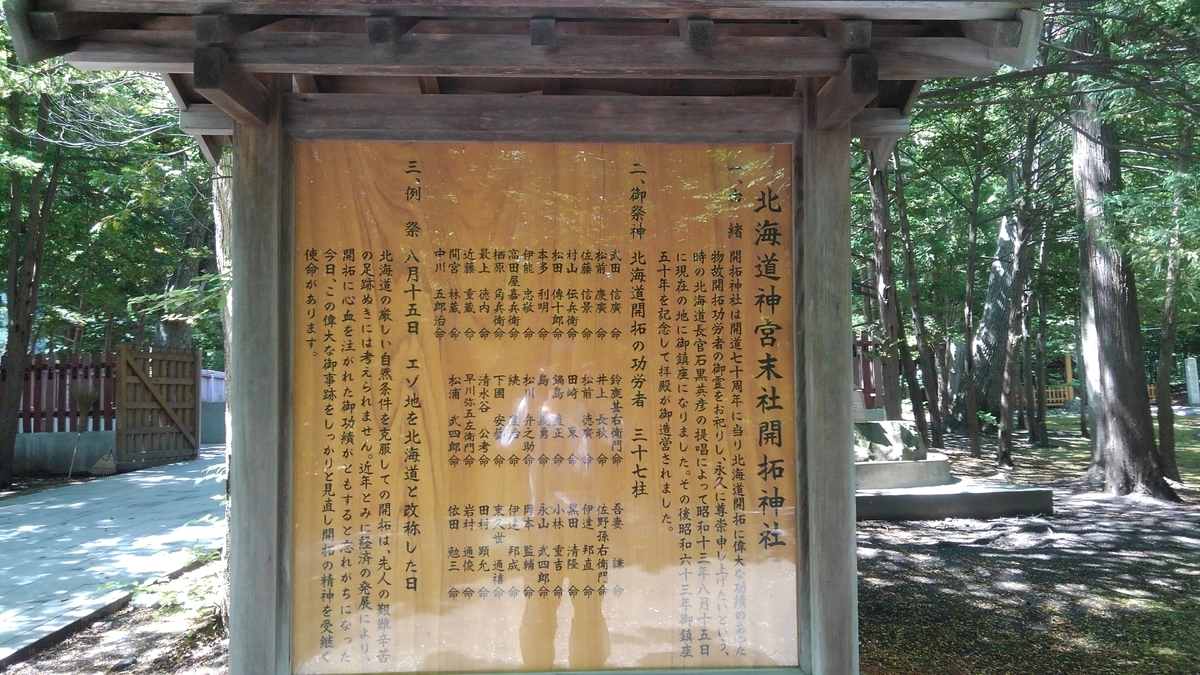 北海道神宮末社開拓神社
一、由緒
開拓神社は開道七十周年に当り北海道開拓に偉大な功績のあった
物故開拓功労者の御霊をお祀りし、永久に尊崇申し上げたいという、
時の北海道長官石黒英彦の提唱によって昭和十三年八月十五日
に現在の地に御鎮座になりました。その後昭和六十三年御鎮座
五十年を記念して拝殿が御造営されました。
二、御祭神 北海道開拓の功労者 三十七柱
武田 信廣 命 鈴鹿甚右衛門 命 吾妻 謙 命
松前 慶廣 命 井上 長秋 命 佐野孫右衛門 命
佐藤 信景 命 松前 徳廣 命 伊達 邦直 命
村山 伝兵衛 命 田崎 東 命 黒田 清隆 命
松田 傳十郎 命 鍋島 直正 命 小林 重吉 命
本多 利明 命 島 義勇 命 永山 武四郎 命
伊能 忠敬 命 松川 弁之助 命 岡本 監輔 命
高田屋嘉兵衛 命 続 豊治 命 伊達 邦成 命
栖原 角兵衛 命 下國 安藝 命 東久世 通禧 命
最上 徳内 命 清水谷 公考 命 田村 顕允 命
近藤 重蔵 命 早川弥五左衛門 命 岩村 通俊 命
間宮 林蔵 命 松浦 武四郎 命 依田 勉三 命
中川 五郎治 命
三、例祭 八月十五日 エゾ地を北海道と改称した日
北海道の厳しい自然条件を克服しての開拓は、先人の艱難辛苦
の足跡ぬきには考えられません。近年とみに経済の発展により、
開拓に心血を注がれた御功績がともすると忘れがちになった
今日、この偉大な御事跡をしっかりと見直し開拓の精神を受継ぐ
使命があります。